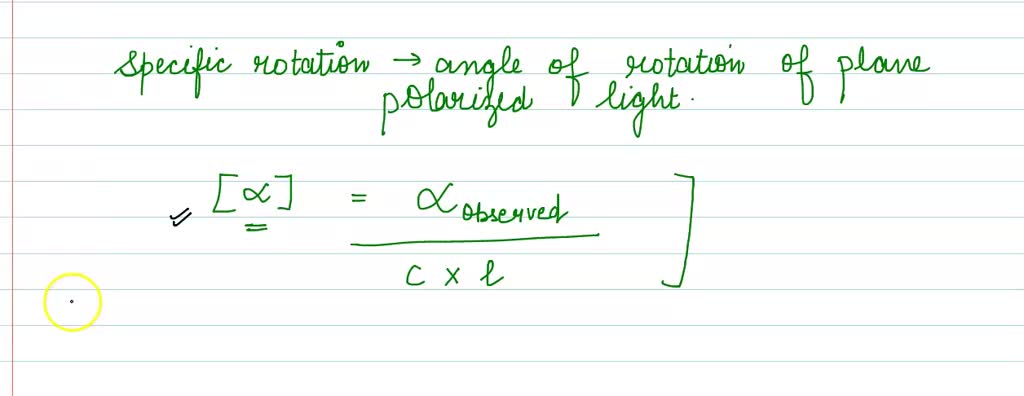 specific rotation → angle of rotation of plane
polarized light.
[α] = α observed
c x l